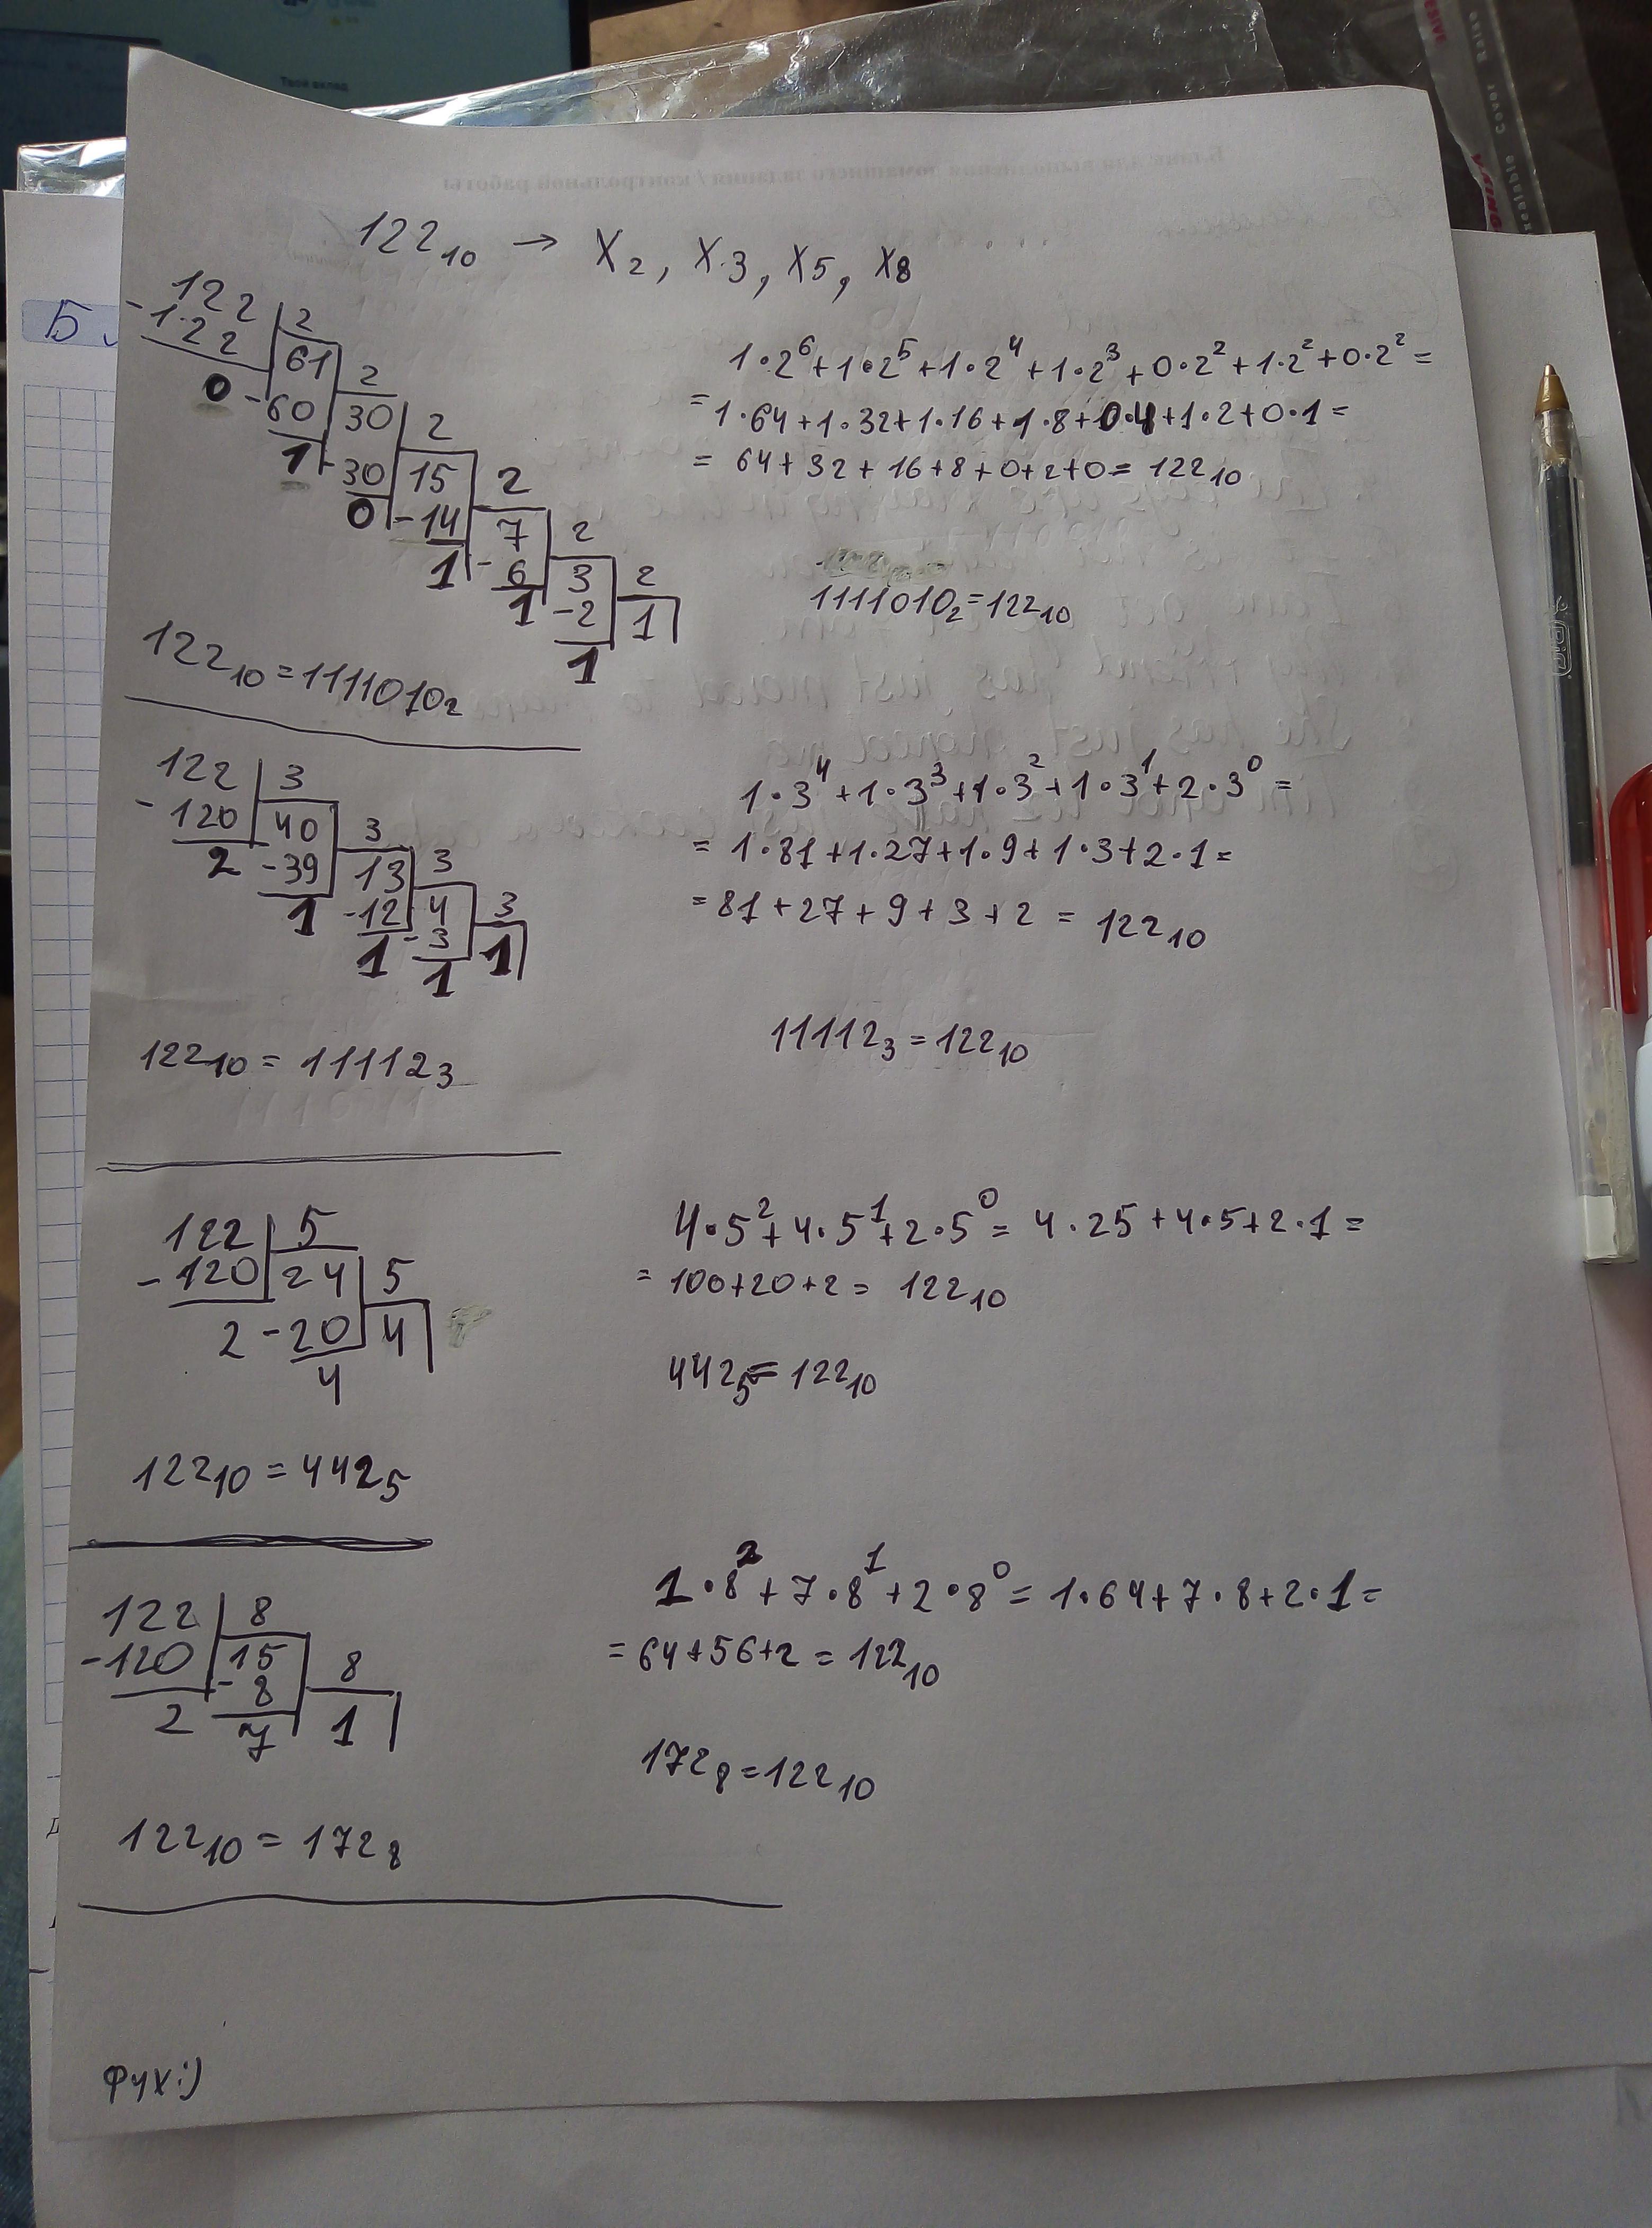 122₁₀ → X₂, X₃, X₅, X₈
122 | 2
-122 | 61 | 2
0 -60 | 30 | 2
1 -30 | 15 | 2
0 -14 | 7 | 2
1 -6 | 3 | 2
1 -2 | 1
1
122₁₀ = 1111010₂
1·2⁶+1·2⁵+1·2⁴+1·2³+0·2²+1·2²+0·2² =
= 1·64+1·32+1·16+1·8+0·4+1·2+0·1 =
= 64+32+16+8+0+2+0 = 122₁₀
1111010₂ = 122₁₀
122 | 3
-120 | 40 | 3
2 -39 | 13 | 3
1 -12 | 4 | 3
1 -3 | 1
1
122₁₀ = 11112₃
1·3⁴+1·3³+1·3²+1·3¹+2·3⁰ =
= 1·81+1·27+1·9+1·3+2·1 =
= 81+27+9+3+2 = 122₁₀
11112₃ = 122₁₀
122 | 5
-120 | 24 | 5
2 -20 | 4
4
122₁₀ = 442₅
4·5²+4·5¹+2·5⁰ = 4·25+4·5+2·1 =
= 100+20+2 = 122₁₀
442₅ = 122₁₀
122 | 8
-120 | 15 | 8
2 -8 | 1
7
122₁₀ = 172₈
1·8²+7·8¹+2·8⁰ = 1·64+7·8+2·1 =
= 64+56+2 = 122₁₀
172₈ = 122₁₀
Фух:)